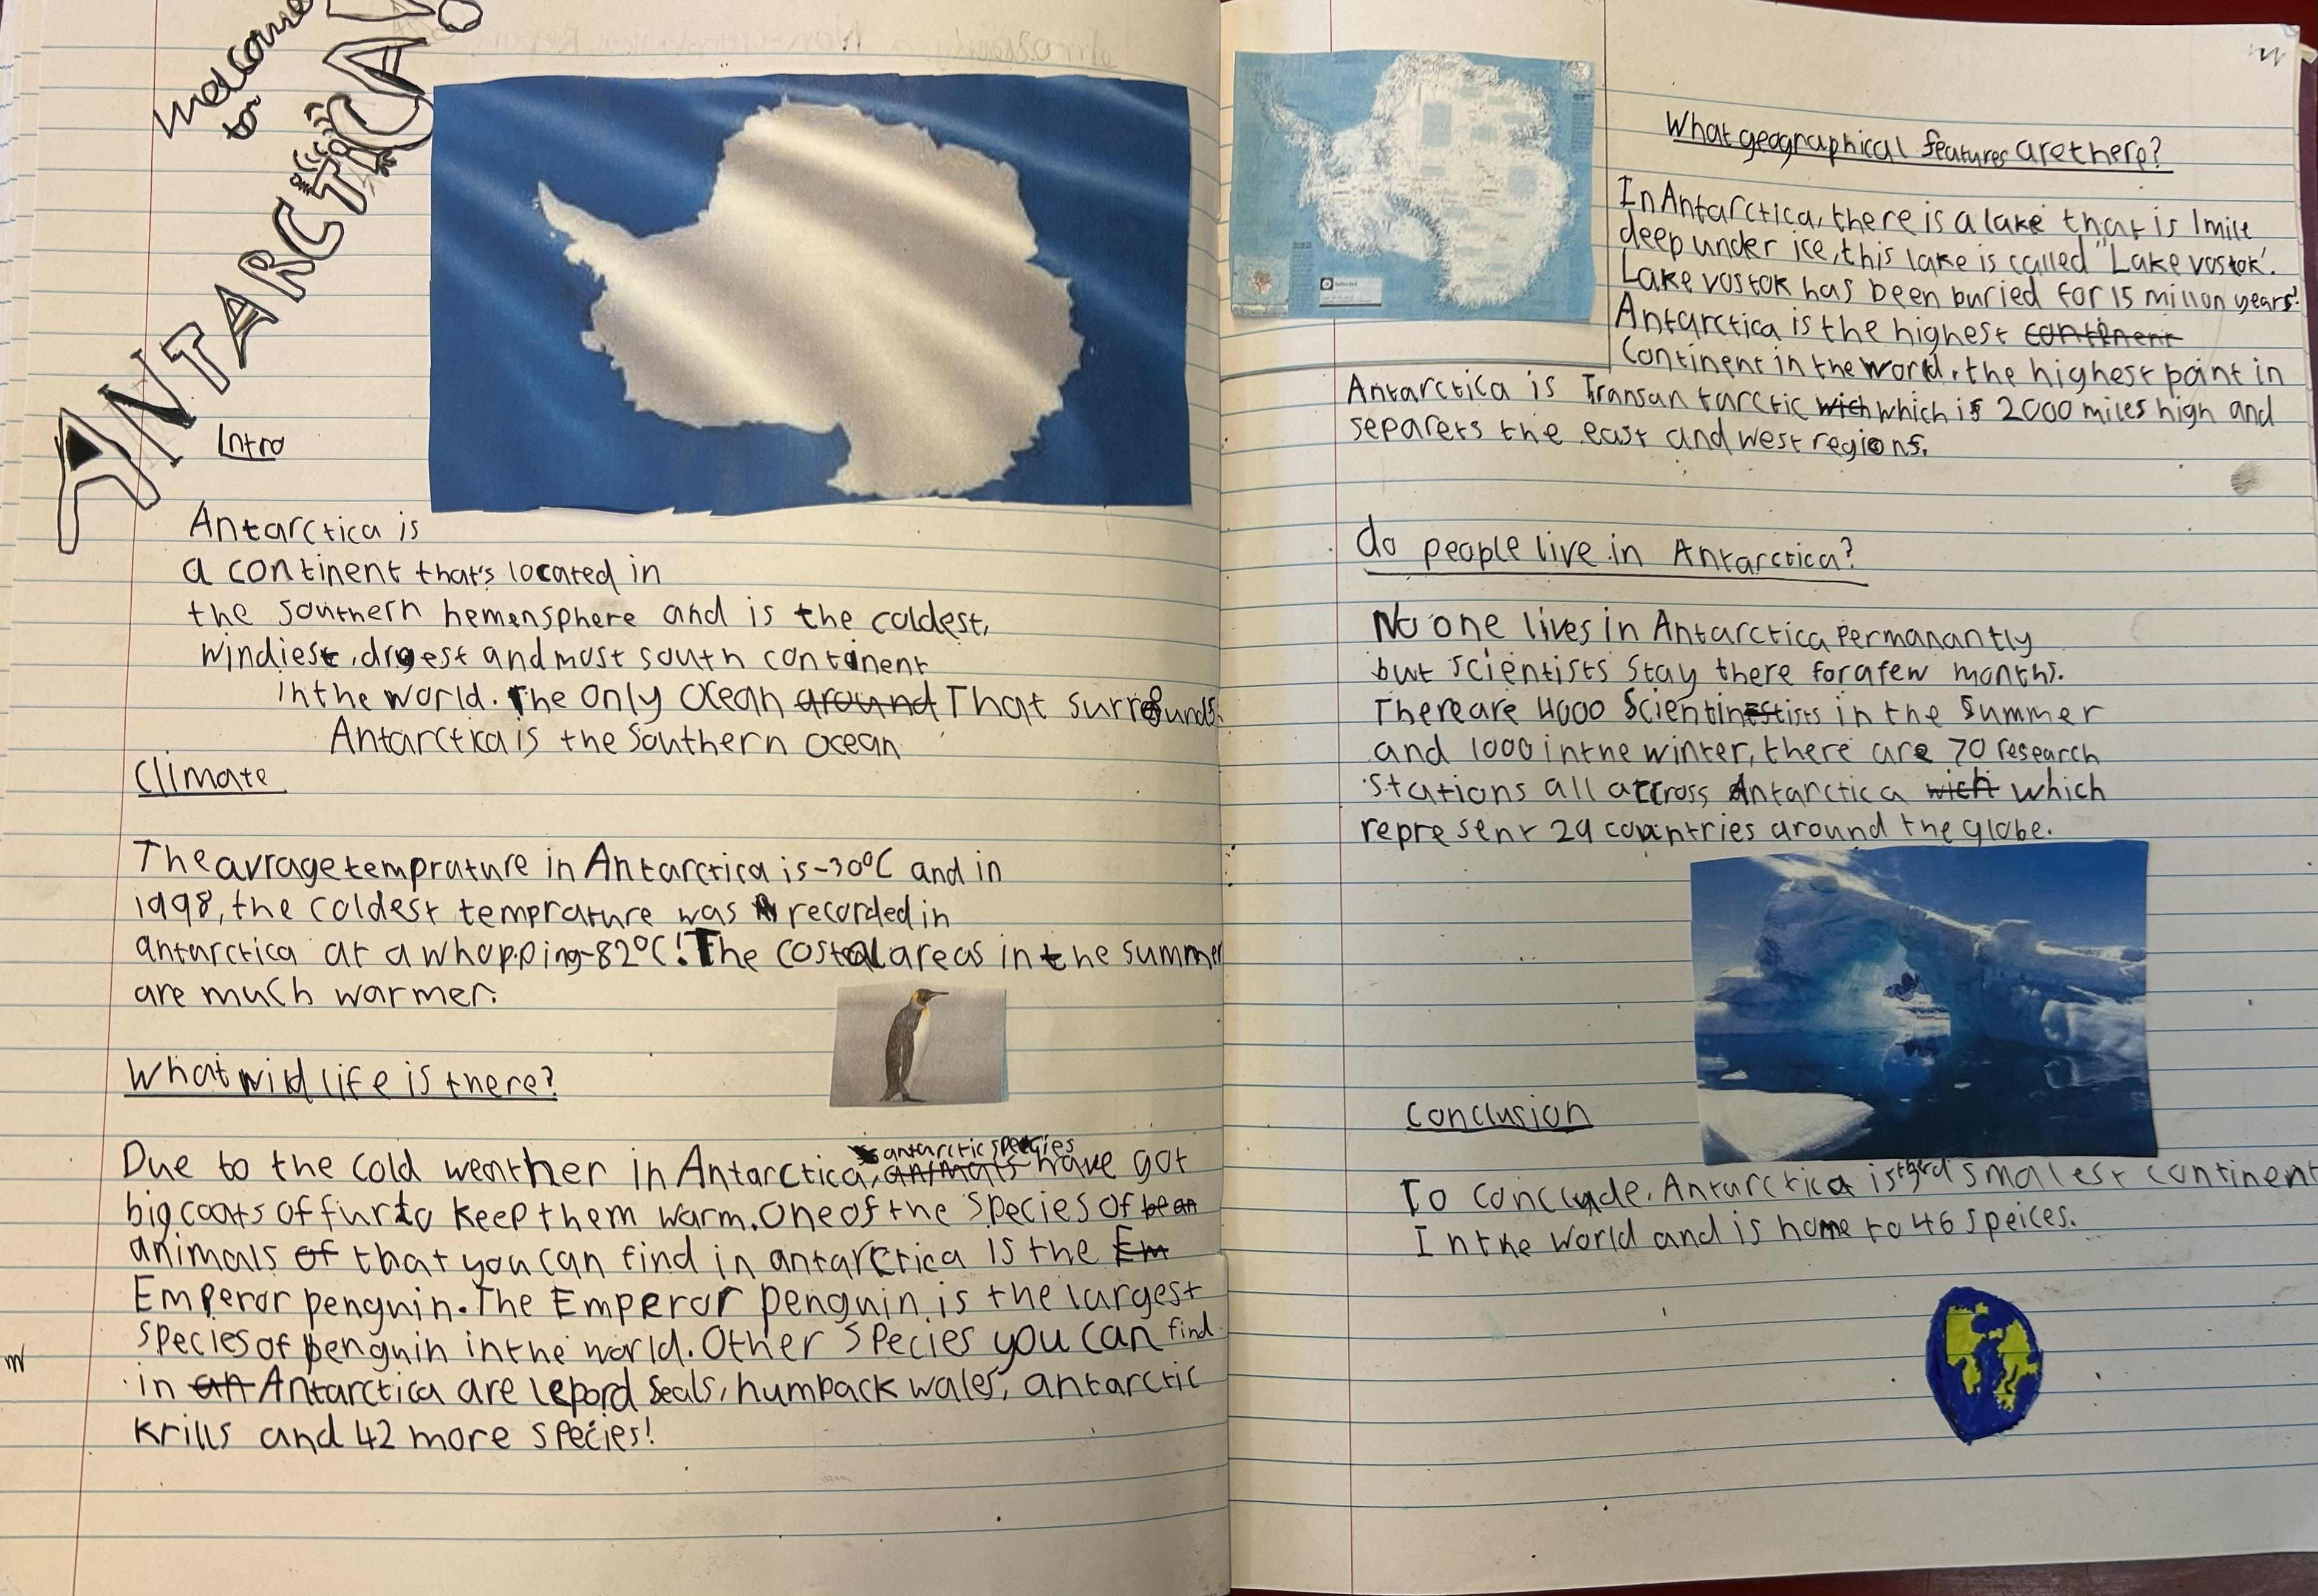 Welcome
to
ANTARCTICA!
Intro
Antarctica is
a continent that's located in
the southern hemensphere and is the coldest,
windiest, dryest and most south continent
in the world. The only Ocean around That surrounds
Antarctica is the Southern Ocean
Climate
The avrage temprature in Antarctica is -30°C and in
1998, the coldest temprature was recorded in
antarctica at a whopping -82°C! The costal areas in the summer
are much warmer.
What wild life is there?
antarctic species
Due to the cold weather in Antarctica, animals have got
big coats of fur to keep them warm. One of the species of bean
animals of that you can find in antarctica is the Em
Emperor penguin. The Emperor penguin is the largest
species of penguin in the world. Other species you can find
in an Antarctica are lepord seals, humpack wales, antarctic
krills and 42 more species!
What geographical features are there?
In Antarctica, there is a lake that is 1 mile
deep under ice, this lake is called "Lake vostok'.
Lake vostok has been buried for 15 millon years!
Antarctica is the highest continent
continent in the world, the highest point in
Antarctica is Transan tarctic wich which is 2000 miles high and
separets the east and west regions.
do people live in Antarctica?
No one lives in Antarctica Permanantly
but scientists stay there for a few months.
There are 4000 Scientinestists in the summer
and 1000 in the winter, there are 70 research
stations all accross Antarctica wich which
represent 29 countries around the globe.
Conclusion
To conclude, Antarctica is therd smalest continent
In the World and is home to 46 speices.